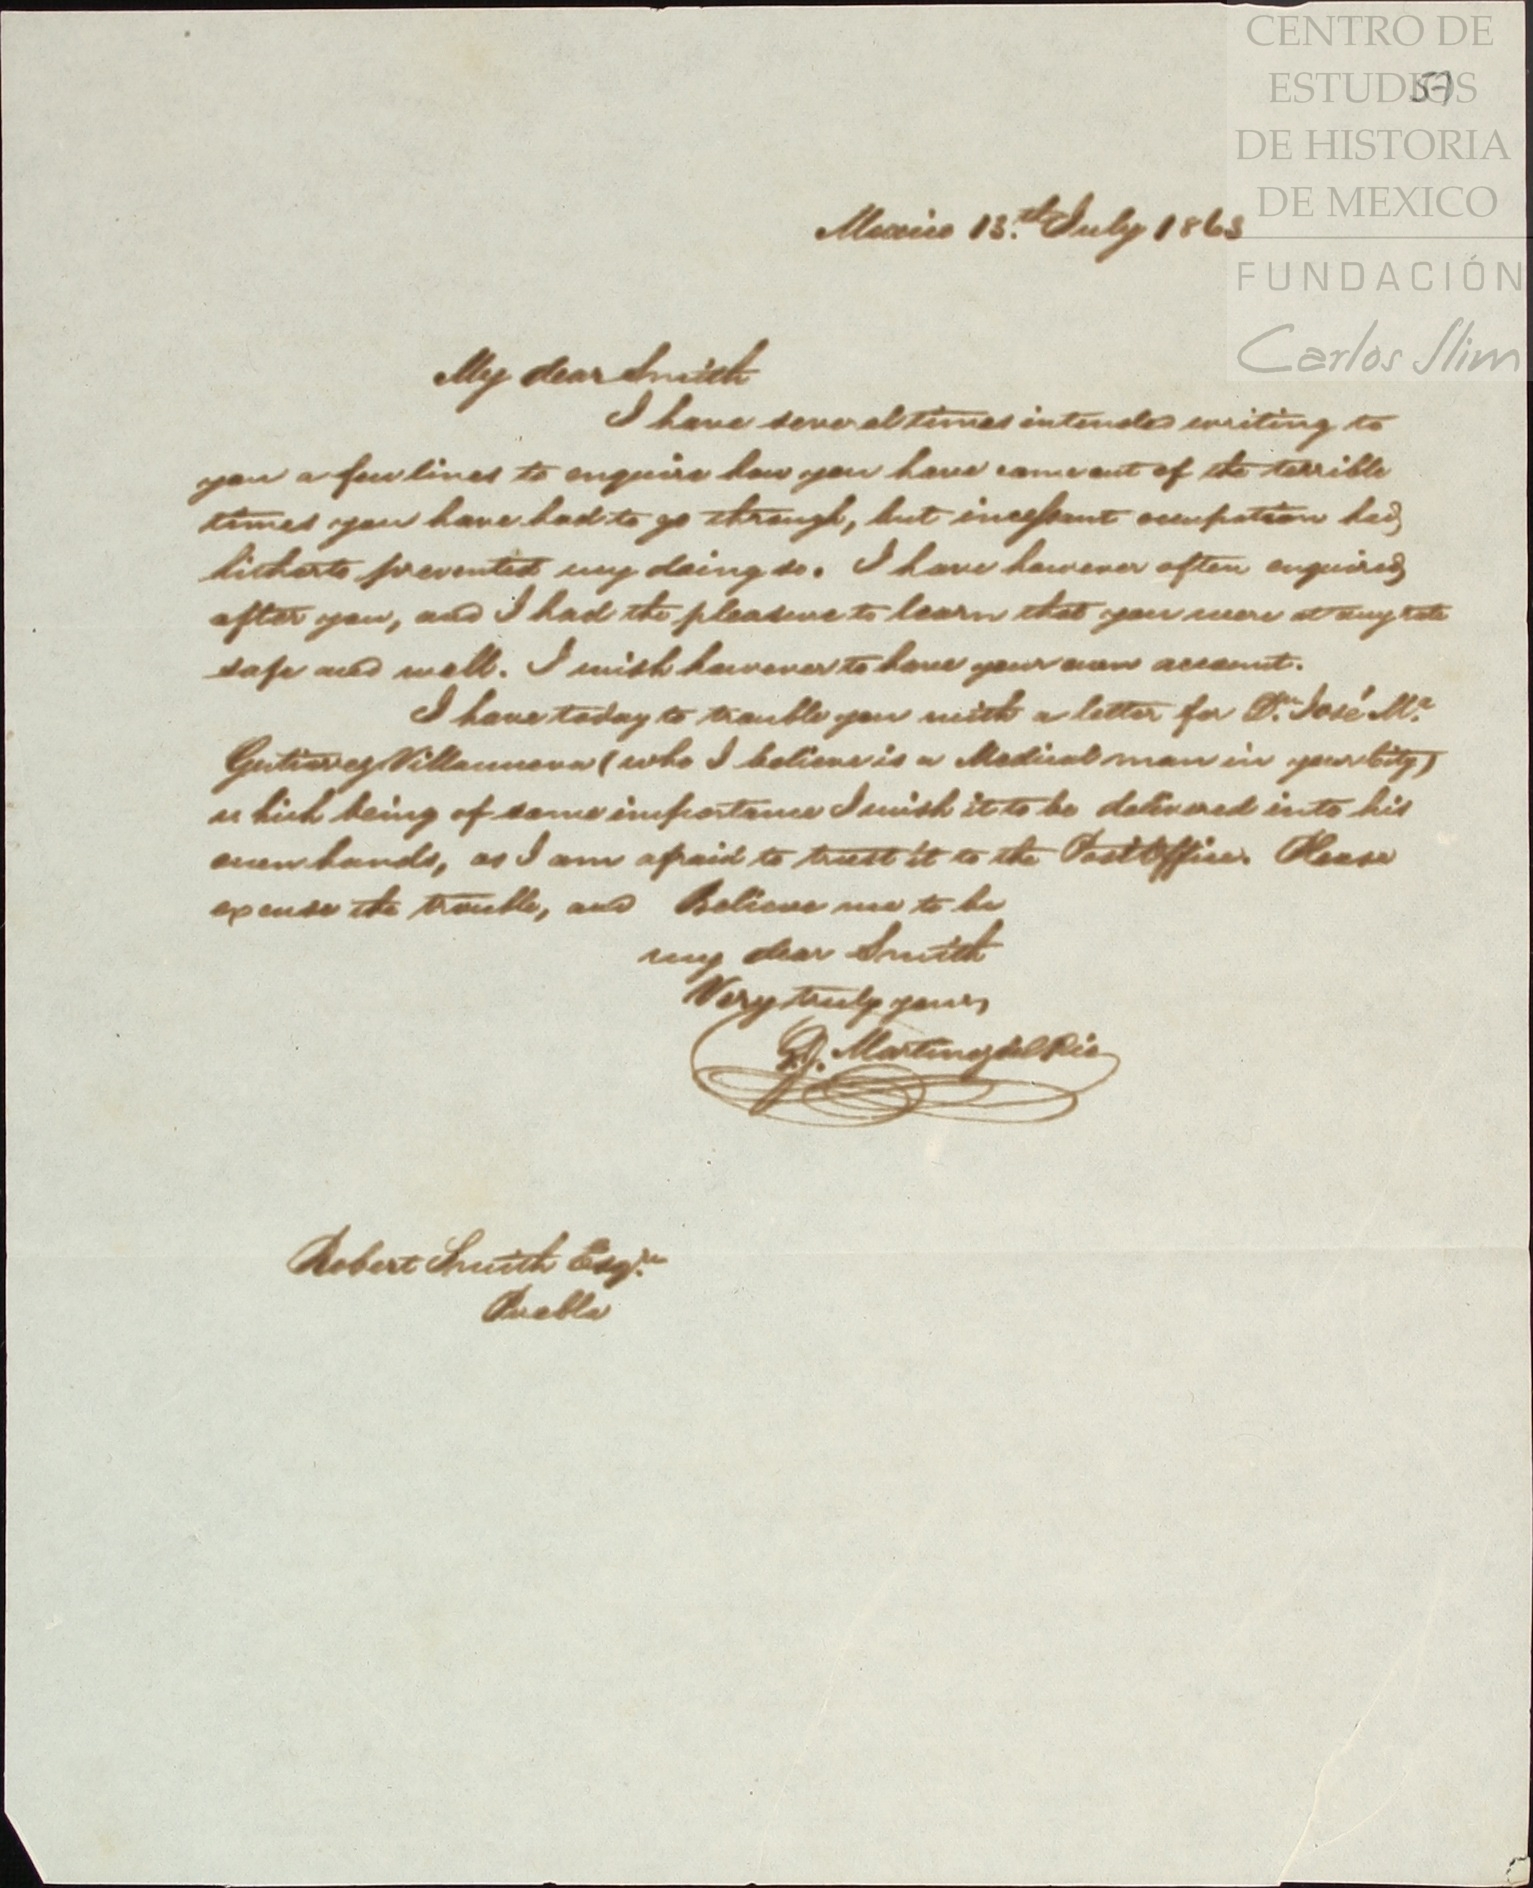 CENTRO DE
ESTUDIOS
DE HISTORIA
DE MEXICO
FUNDACIÓN
Carlos Slim
57
Mexico 13.th July 1863
My dear Smith
I have several times intended writing to
you a few lines to enquire how you have come out of the terrible
times you have had to go through, but incessant occupation had
hitherto prevented my doing so. I have however often enquired
after you, and I had the pleasure to learn that you were at any rate
safe and well. I wish however to have your own account.
I have today to trouble you with a letter for Dn. José Ma.
Gutierrez Villanueva (who I believe is a Medical man in your City)
which being of some importance I wish it to be delivered into his
own hands, as I am afraid to trust it to the Post Office. Please
excuse the trouble, and Believe me to be
my dear Smith
Very truly yours,
Martinez del Rio
Robert Smith Esqre.
Puebla